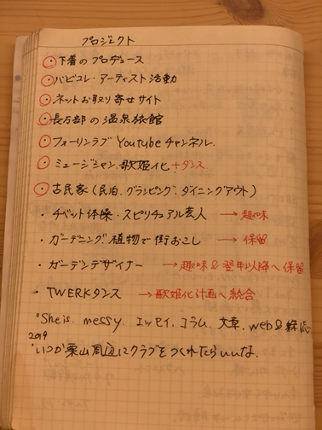 プロジェクト
下着のプロデュース
パピコレ・アーティスト活動
ネットお取り寄せサイト
長万部の温泉旅館
フォーリンラブ Youtubeチャンネル.
ミュージシャン歌姫化+ダンス
古民家(民泊、グランピング、ダイニングアウト)
・チベット体操・スピリチュアル芸人 →趣味
・ガーデニング 植物で街おこし →保留
・ガーデンデザイナー →趣味&翌年以降へ保留
・TWERKダンス →歌姫化計画へ統合
"She is, messy, エッセイ、コラム、文章、web&
2019
"いつか栗山周辺にクラブをつくれたらいいな.